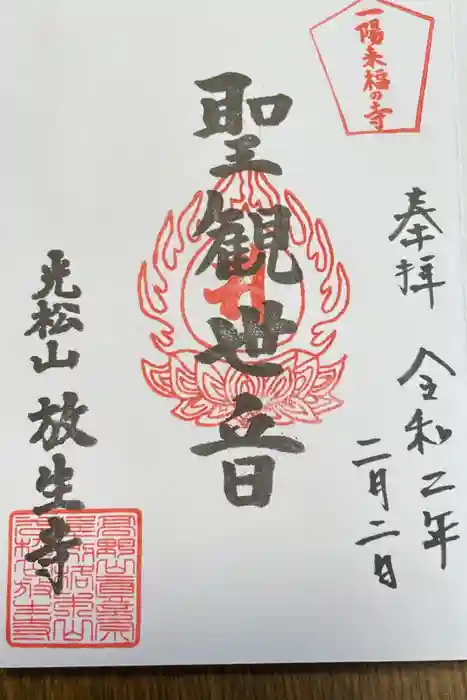 一陽来福の寺
奉拝
令和二年
二月二日
聖観世音
光松山
放生寺